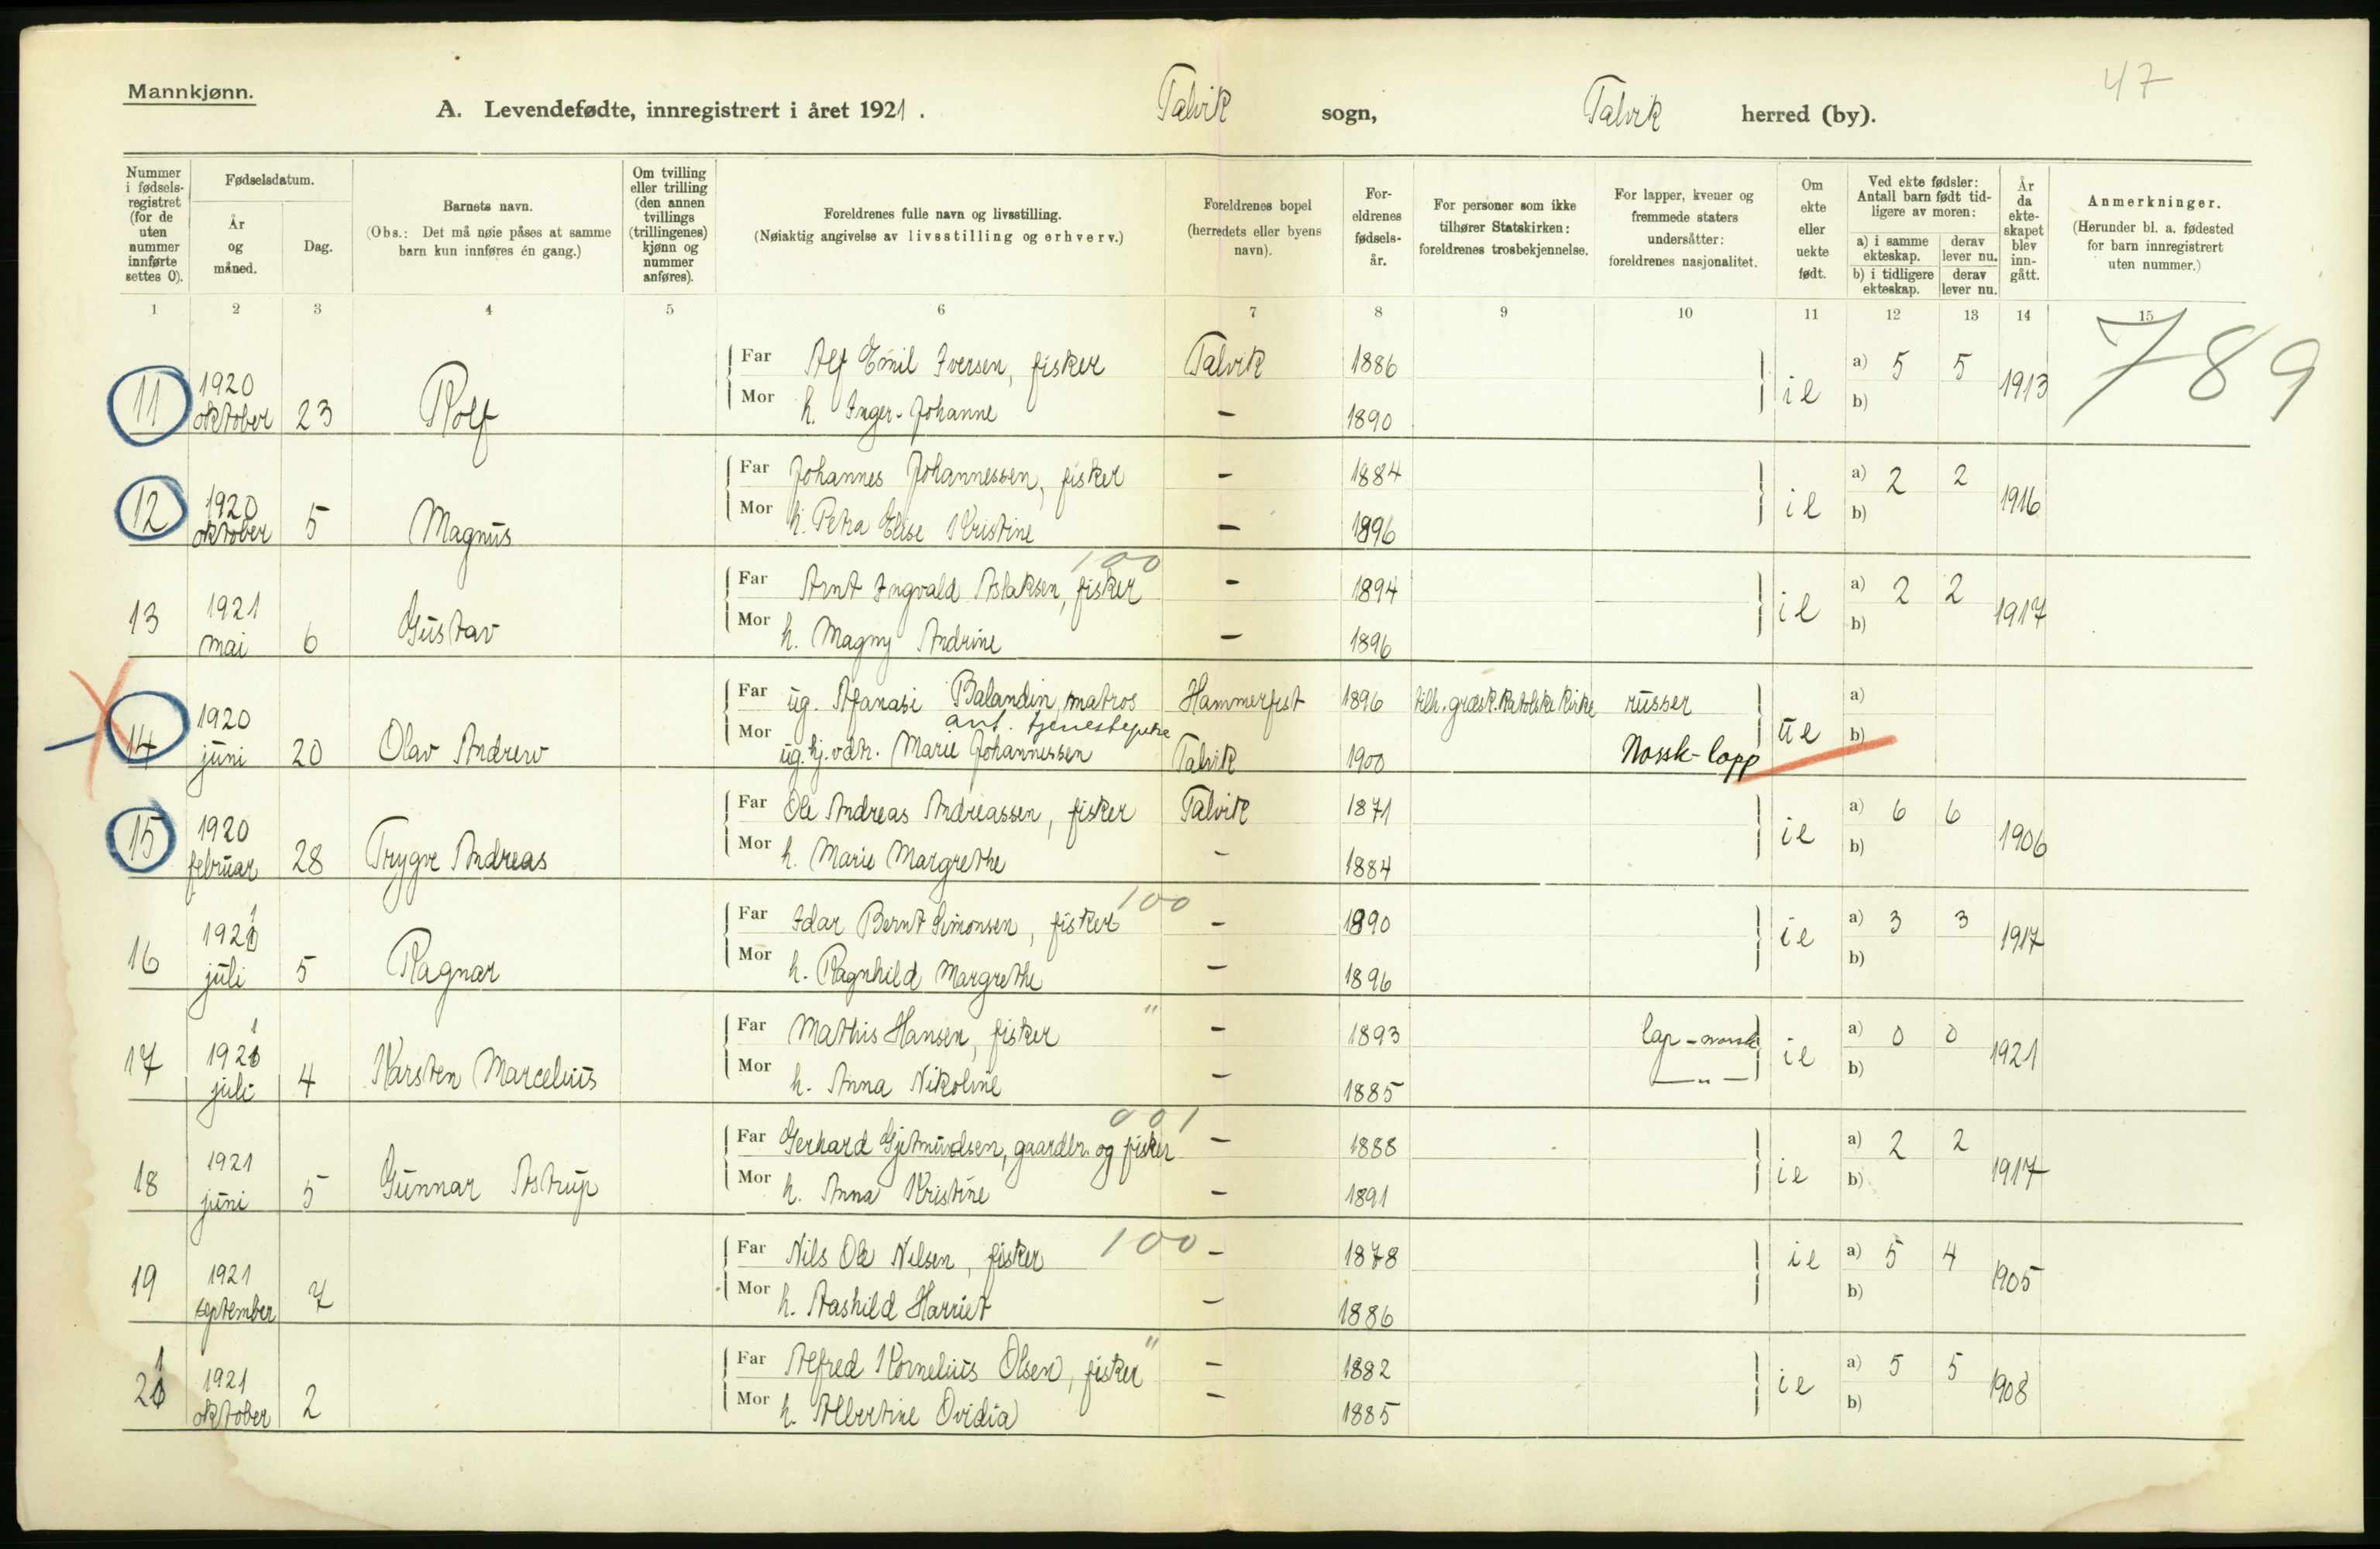 47
Mannkjønn.
A. Levendefødte, innregistrert i året 1921. Talvik sogn, Talvik herred (by).
Nummer i fødselsregistret (for de uten nummer innførte settes 0).
Fødselsdatum.
År og måned.
Dag.
Barnets navn.
(Obs.: Det må nøie påses at samme barn kun innføres én gang.)
Om tvilling eller trilling (den annen tvillings (trillingenes) kjønn og nummer anføres).
Foreldrenes fulle navn og livsstilling.
(Nøiaktig angivelse av livsstilling og erhverv.)
Foreldrenes bopel (herredets eller byens navn).
Foreldrenes fødselsår.
For personer som ikke tilhører Statskirken: foreldrenes trosbekjennelse.
For lapper, kvener og fremmede staters undersåtter: foreldrenes nasjonalitet.
Om ekte eller uekte født.
Ved ekte fødsler: Antall barn født tidligere av moren:
a) i samme ekteskap. derav lever nu.
b) i tidligere ekteskap. derav lever nu.
År da ekteskapet blev inngått.
Anmerkninger.
(Herunder bl. a. fødested for barn innregistrert uten nummer.)
1 2 3 4 5 6 7 8 9 10 11 12 13 14 15
789
11 1920 oktober 23 Rolf
Far Alf Emil Iversen, fisker Talvik 1886 ie a) 5 5 1913
Mor h. Inger-Johanne — 1890 b)
12 1920 oktober 5 Magnus
Far Johannes Johannessen, fisker — 1884 ie a) 2 2 1916
Mor h. Petra Elise Kristine — 1896 b)
100
13 1921 mai 6 Gustav
Far Arnt Ingvald Aslaksen, fisker — 1894 ie a) 2 2 1917
Mor h. Magny Andrine — 1896 b)
14 1920 juni 20 Olav Andrew
Far ug. Afanasi Balandin, matros Hammerfest 1896 tilh. græsk. katolske kirke russer ue a)
ant. tjenestepike
Mor ug. hj.vdr. Marie Johannessen Talvik 1900 Norsk-lapp b)
15 1920 februar 28 Trygve Andreas
Far Ole Andreas Andreassen, fisker Talvik 1871 ie a) 6 6 1906
Mor h. Marie Margrethe — 1884 b)
100
16 1921 juli 5 Ragnar
Far Idar Bernt Simonsen, fisker — 1890 ie a) 3 3 1917
Mor h. Ragnhild Margrethe — 1896 b)
17 1921 juli 4 Karsten Marcelius
Far Mathis Hansen, fisker " — 1893 lap-norsk ie a) 0 0 1921
Mor h. Anna Nikoline — 1885 —"— b)
001
18 1921 juni 5 Gunnar Astrup
Far Gerhard Gjetmundsen, gaardbr. og fisker — 1888 ie a) 2 2 1917
Mor h. Anna Kristine — 1891 b)
19 1921 september 7
Far Nils Ole Nilsen, fisker 100 — 1878 ie a) 5 4 1905
Mor h. Aashild Harriet — 1886 b)
21 1921 oktober 2
Far Alfred Kornelius Olsen, fisker " — 1882 ie a) 5 5 1908
Mor h. Albertine Ovidia — 1885 b)